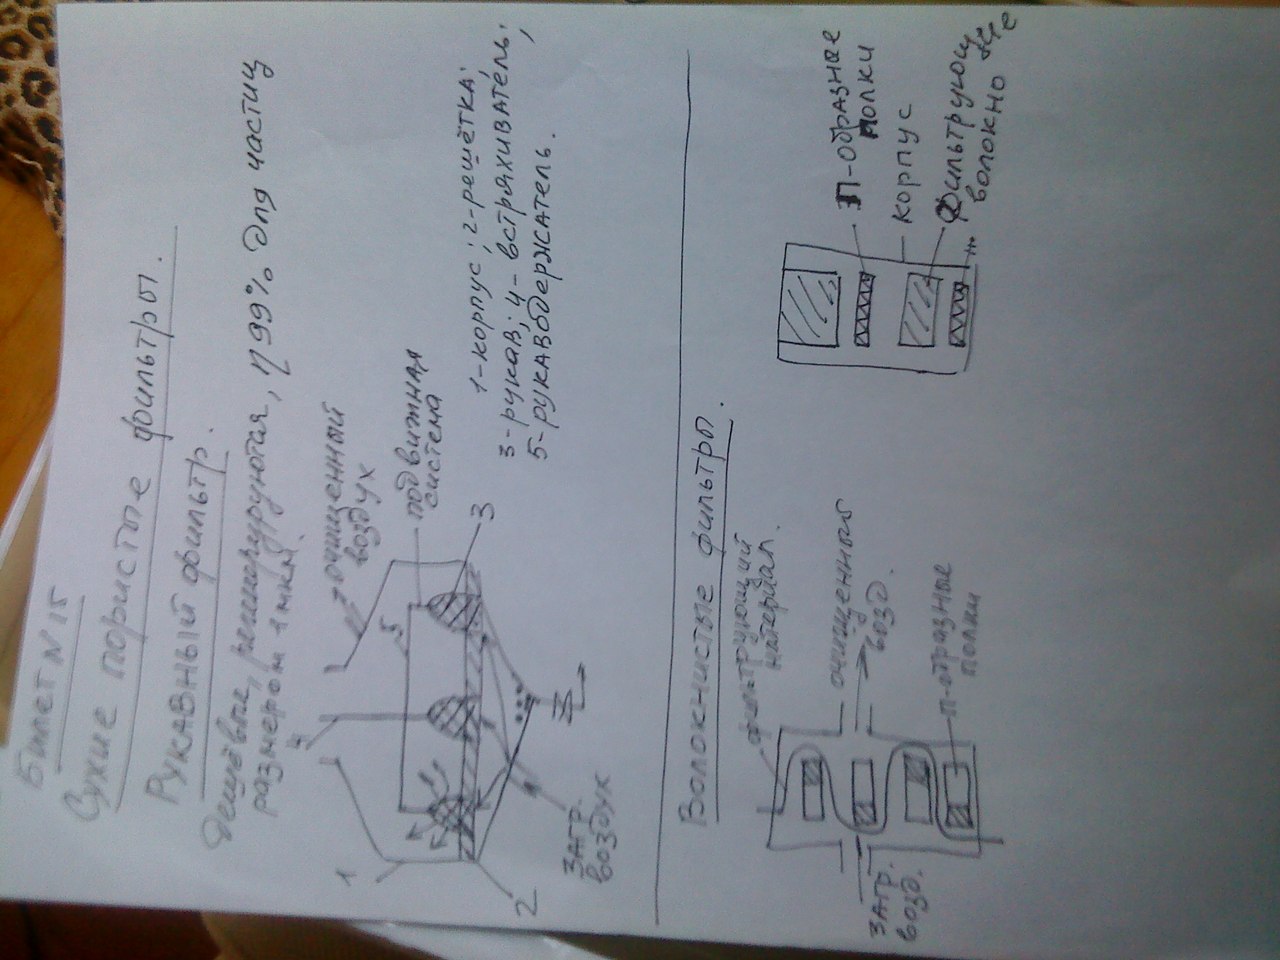 Билет N 15
Сухие пористые фильтры.
Рукавный фильтр.
Дешёвые, регинирируются, η 99% для частиц
размером 1 мкм.
очищенный
воздух
подвижная
система
1
2
3
4
5
загр.
воздух
1-корпус; 2-решётка;
3-рукав; 4-встряхиватель;
5-рукаводержатель.
Волокнистые фильтры.
фильтрующий
материал.
очищенный
возд.
П-образные
полки
загр.
возд.
П-образные
полки
корпус
Фильтрующее
волокно